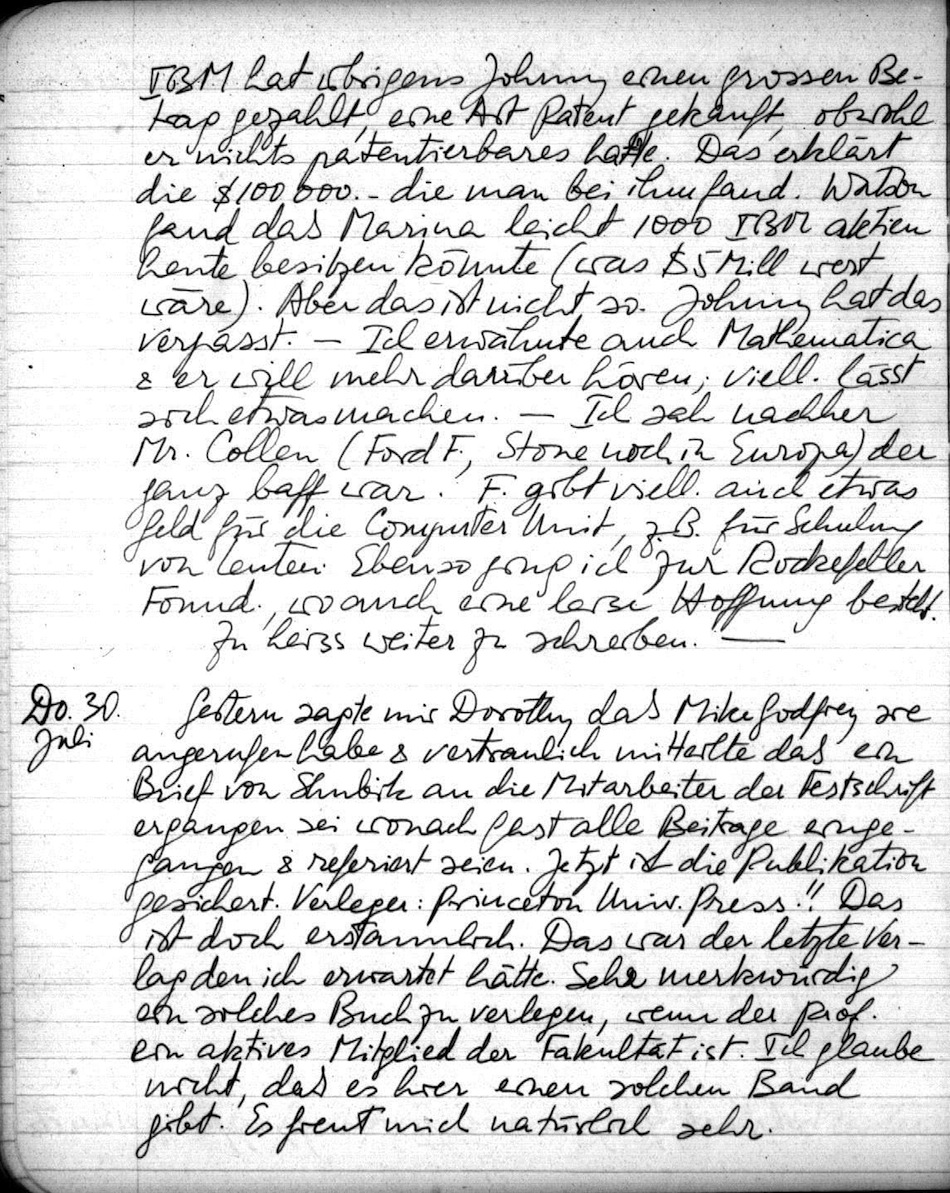 IBM hat übrigens Johnny einen grossen Be-
trag gezahlt, eine Art Patent gekauft, obwohl
er nichts patentierbares hatte. Das erklärt
die $100'000.- die man bei ihm fand. Watson
fand das Marina leicht 1000 IBM aktien
heute besitzen könnte (was $5 Mill wert
wäre). Aber das ist nicht so. Johnny hat das
verpasst. — Ich erwähnte auch Mathematica
& er will mehr darüber hören; viell. lässt
sich etwas machen. — Ich sah nachher
Mr. Collen (Ford F., Stone noch in Europa) der
ganz baff war. F. gibt viell. auch etwas
Geld für die Computer Unit, z.B. für Schulung
von Leuten. Ebenso ging ich zur Rockefeller
Found., wo auch eine leise Hoffnung besteht.
Zu heiss weiter zu schreiben. —
Do. 30. Juli Gestern sagte mir Dorothy das Mike Godfrey sie
angerufen habe & vertraulich mitteilte das ein
Brief von Shubik an die Mitarbeiter der Festschrift
ergangen sei wonach fast alle Beiträge einge-
gangen & referiert seien. Jetzt ist die Publikation
gesichert. Verleger: Princeton Univ. Press!! Das
ist doch erstaunlich. Das war der letzte Ver-
lag den ich erwartet hätte. Sehr merkwürdig
ein solches Buch zu verlegen, wenn der Prof.
ein aktives Mitglied der Fakultät ist. Ich glaube
nicht, das es hier einen solchen Band
gibt. Es freut mich natürlich sehr.